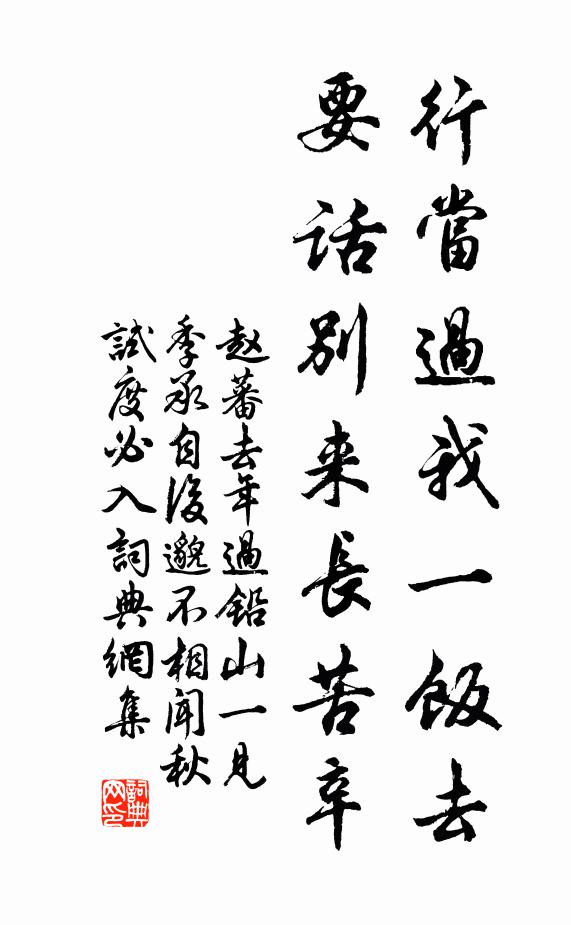 行當過我一飯去
要话別来長苦辛
赵蕃去年過鉛山一見
季承自後邈不相聞秋
試度必入詞典網集
詞典网印